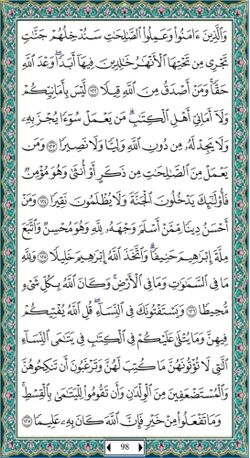 وَالَّذِينَ ءَامَنُوا وَعَمِلُوا الصَّٰلِحَٰتِ سَنُدْخِلُهُمْ جَنَّٰتٍ
تَجْرِى مِن تَحْتِهَا الْأَنْهَٰرُ خَٰلِدِينَ فِيهَا أَبَدًا ۖ وَعْدَ اللَّهِ
حَقًّا ۚ وَمَنْ أَصْدَقُ مِنَ اللَّهِ قِيلًا ١٢٢ لَّيْسَ بِأَمَانِيِّكُمْ
وَلَا أَمَانِىِّ أَهْلِ الْكِتَٰبِ ۗ مَن يَعْمَلْ سُوءًا يُجْزَ بِهِ
وَلَا يَجِدْ لَهُ مِن دُونِ اللَّهِ وَلِيًّا وَلَا نَصِيرًا ١٢٣ وَمَن
يَعْمَلْ مِنَ الصَّٰلِحَٰتِ مِن ذَكَرٍ أَوْ أُنثَىٰ وَهُوَ مُؤْمِنٌ
فَأُولَٰئِكَ يَدْخُلُونَ الْجَنَّةَ وَلَا يُظْلَمُونَ نَقِيرًا ١٢٤ وَمَنْ
أَحْسَنُ دِينًا مِّمَّنْ أَسْلَمَ وَجْهَهُ لِلَّهِ وَهُوَ مُحْسِنٌ وَاتَّبَعَ
مِلَّةَ إِبْرَٰهِيمَ حَنِيفًا ۗ وَاتَّخَذَ اللَّهُ إِبْرَٰهِيمَ خَلِيلًا ١٢٥ وَلِلَّهِ
مَا فِى السَّمَٰوَٰتِ وَمَا فِى الْأَرْضِ ۚ وَكَانَ اللَّهُ بِكُلِّ شَىْءٍ
مُّحِيطًا ١٢٦ وَيَسْتَفْتُونَكَ فِى النِّسَاءِ ۖ قُلِ اللَّهُ يُفْتِيكُمْ
فِيهِنَّ وَمَا يُتْلَىٰ عَلَيْكُمْ فِى الْكِتَٰبِ فِى يَتَٰمَى النِّسَاءِ
الَّٰتِى لَا تُؤْتُونَهُنَّ مَا كُتِبَ لَهُنَّ وَتَرْغَبُونَ أَن تَنكِحُوهُنَّ
وَالْمُسْتَضْعَفِينَ مِنَ الْوِلْدَٰنِ وَأَن تَقُومُوا لِلْيَتَٰمَىٰ بِالْقِسْطِ ۚ
وَمَا تَفْعَلُوا مِنْ خَيْرٍ فَإِنَّ اللَّهَ كَانَ بِهِ عَلِيمًا ١٢٧
98